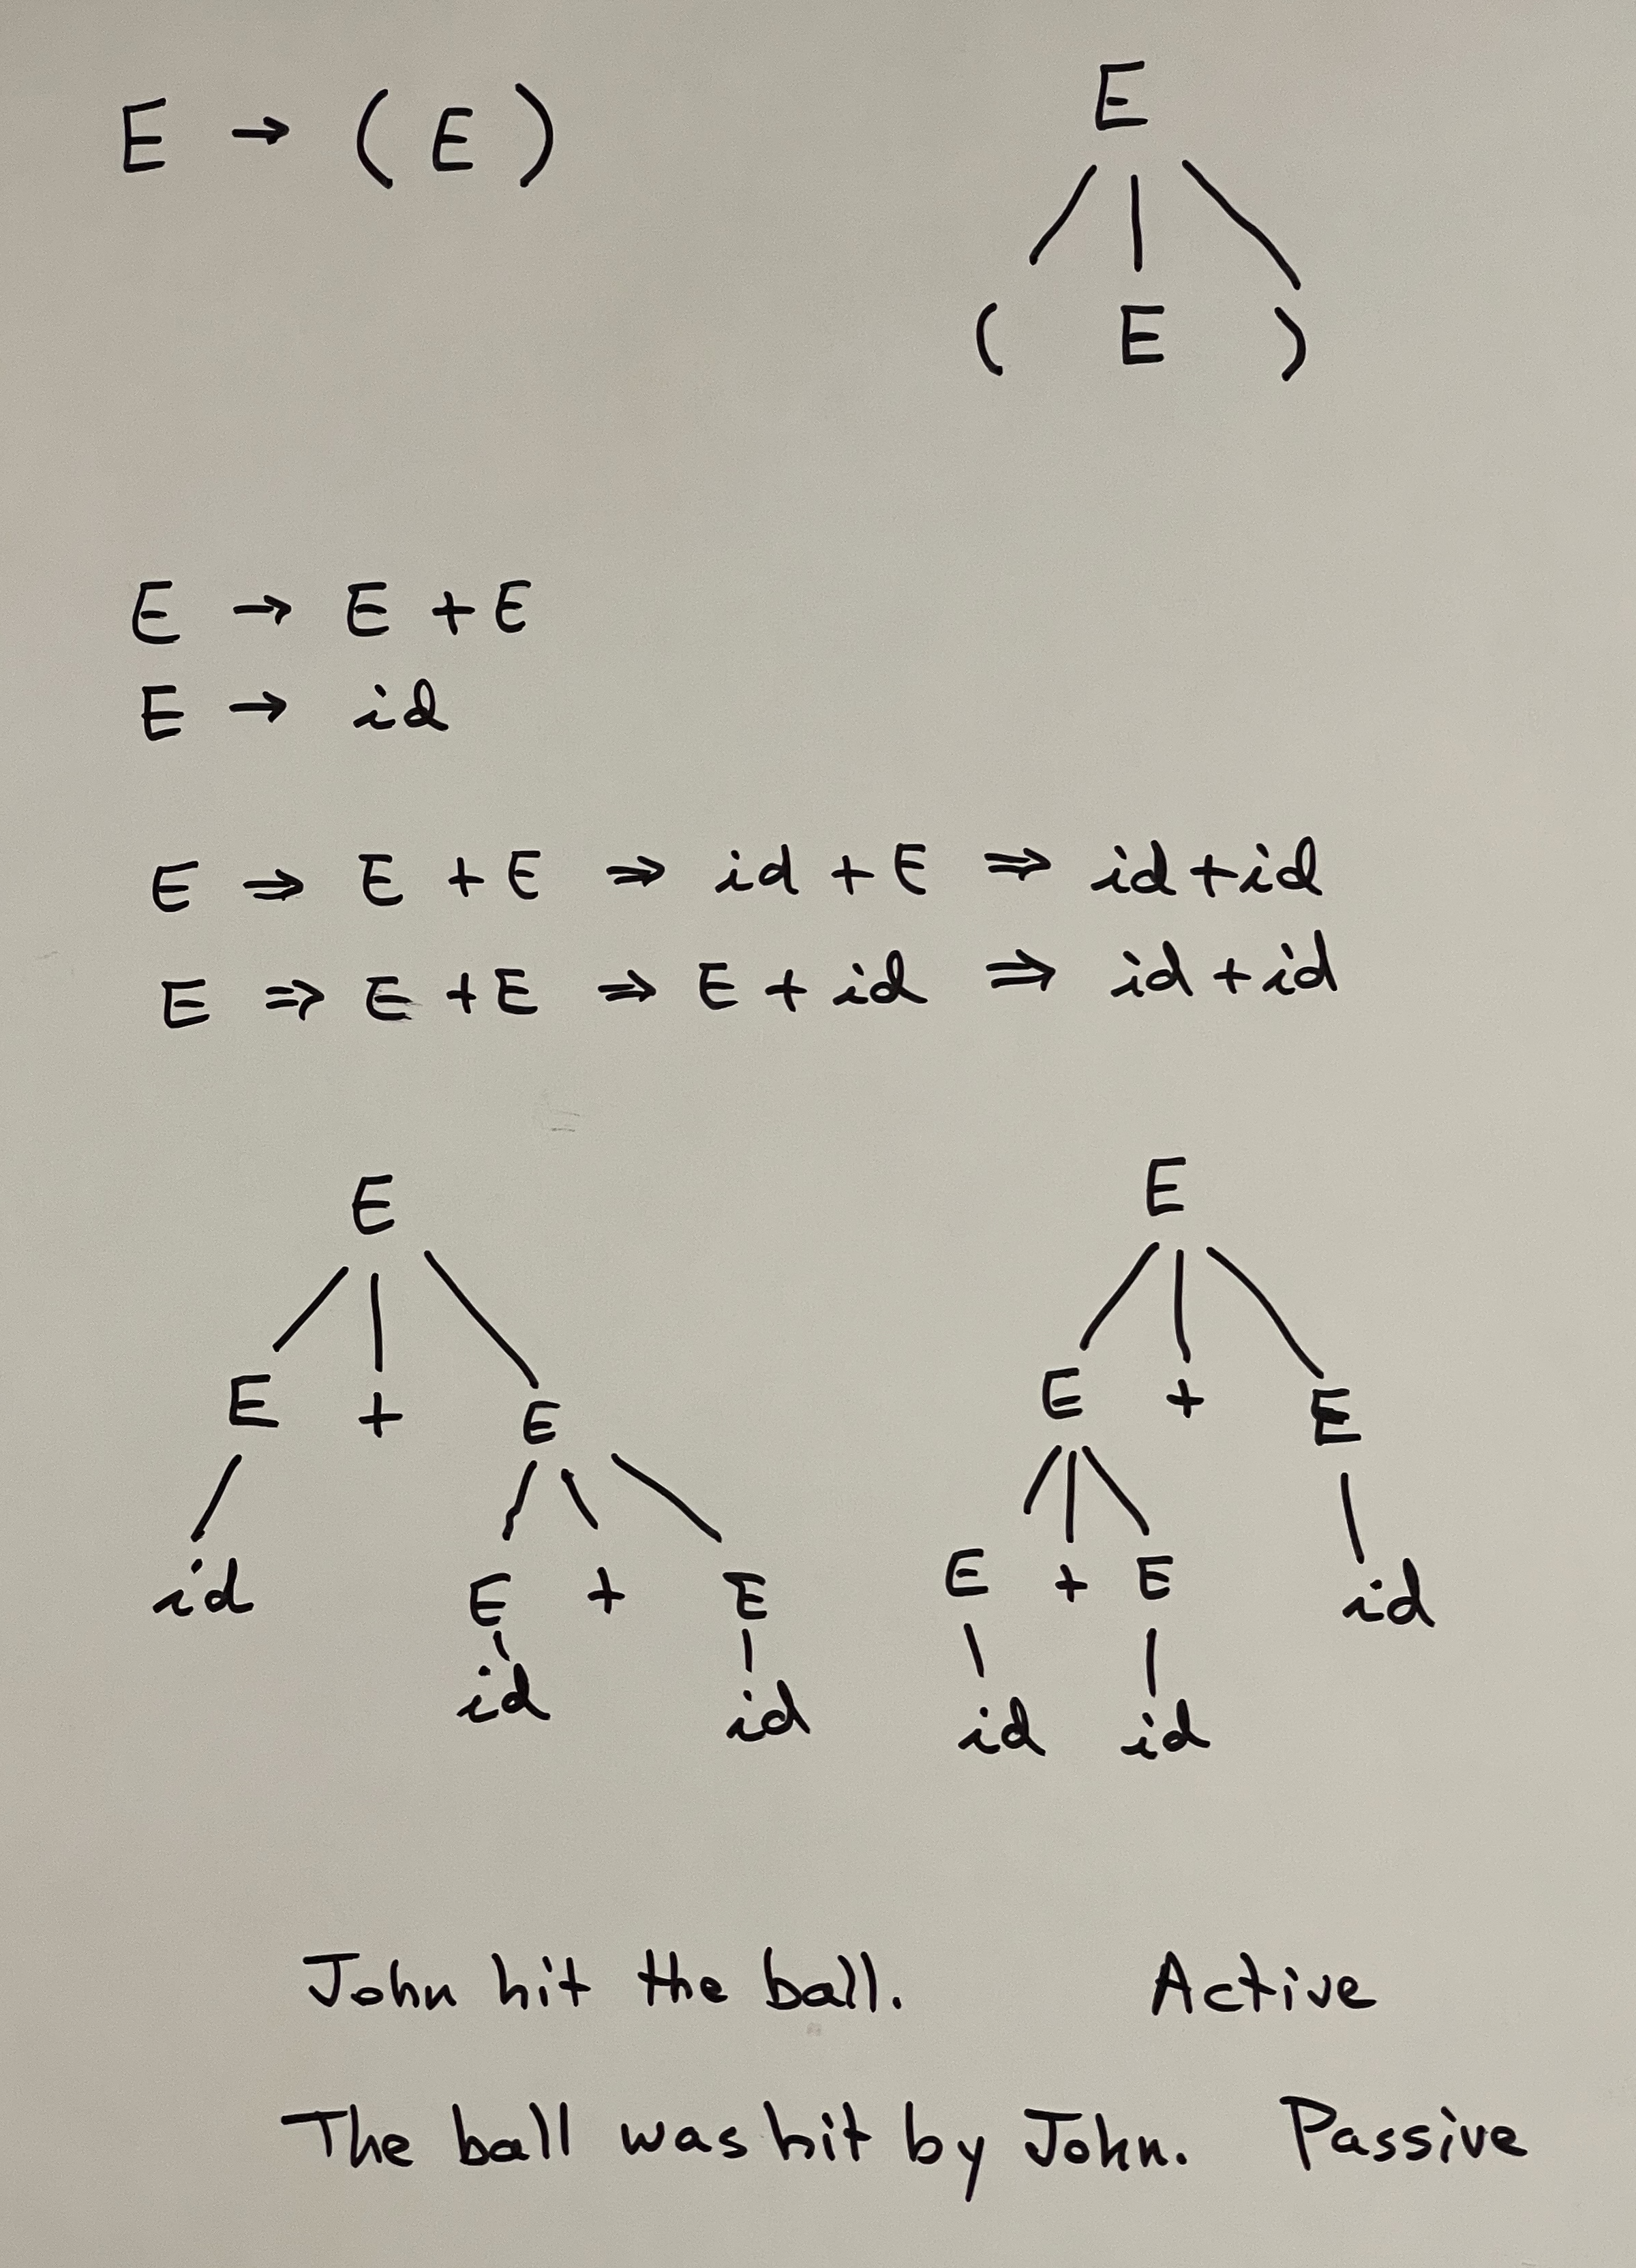 E → ( E )
E
( E )
E → E + E
E → id
E ⇒ E + E ⇒ id + E ⇒ id + id
E ⇒ E + E ⇒ E + id ⇒ id + id
E
E + E
id E + E
id id
E
E + E
E + E id
id id
John hit the ball. Active
The ball was hit by John. Passive